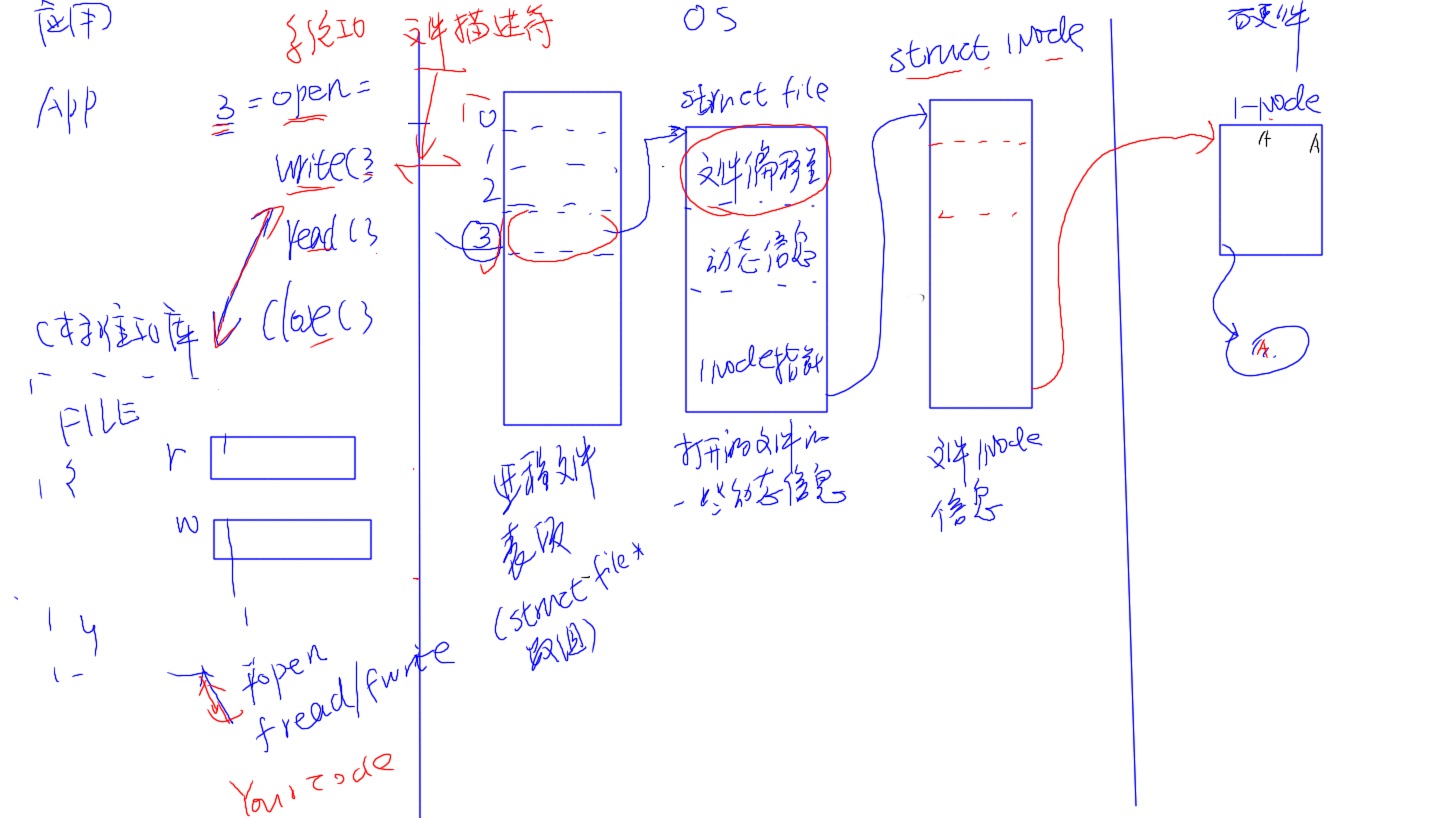 应用
App
系统IO
3 = open =
write(3
read(3
Close(3
C标准IO库
FILE
{
r
w
fopen
fread/fwrite
Your code
文件描述符
OS
0
1
2
3
进程文件
表项
(struct file*
数组)
struct file
文件偏移量
动态信息
inode指针
打开的文件的
一些动态信息
struct inode
文件inode
信息
硬件
i-node
A A
A